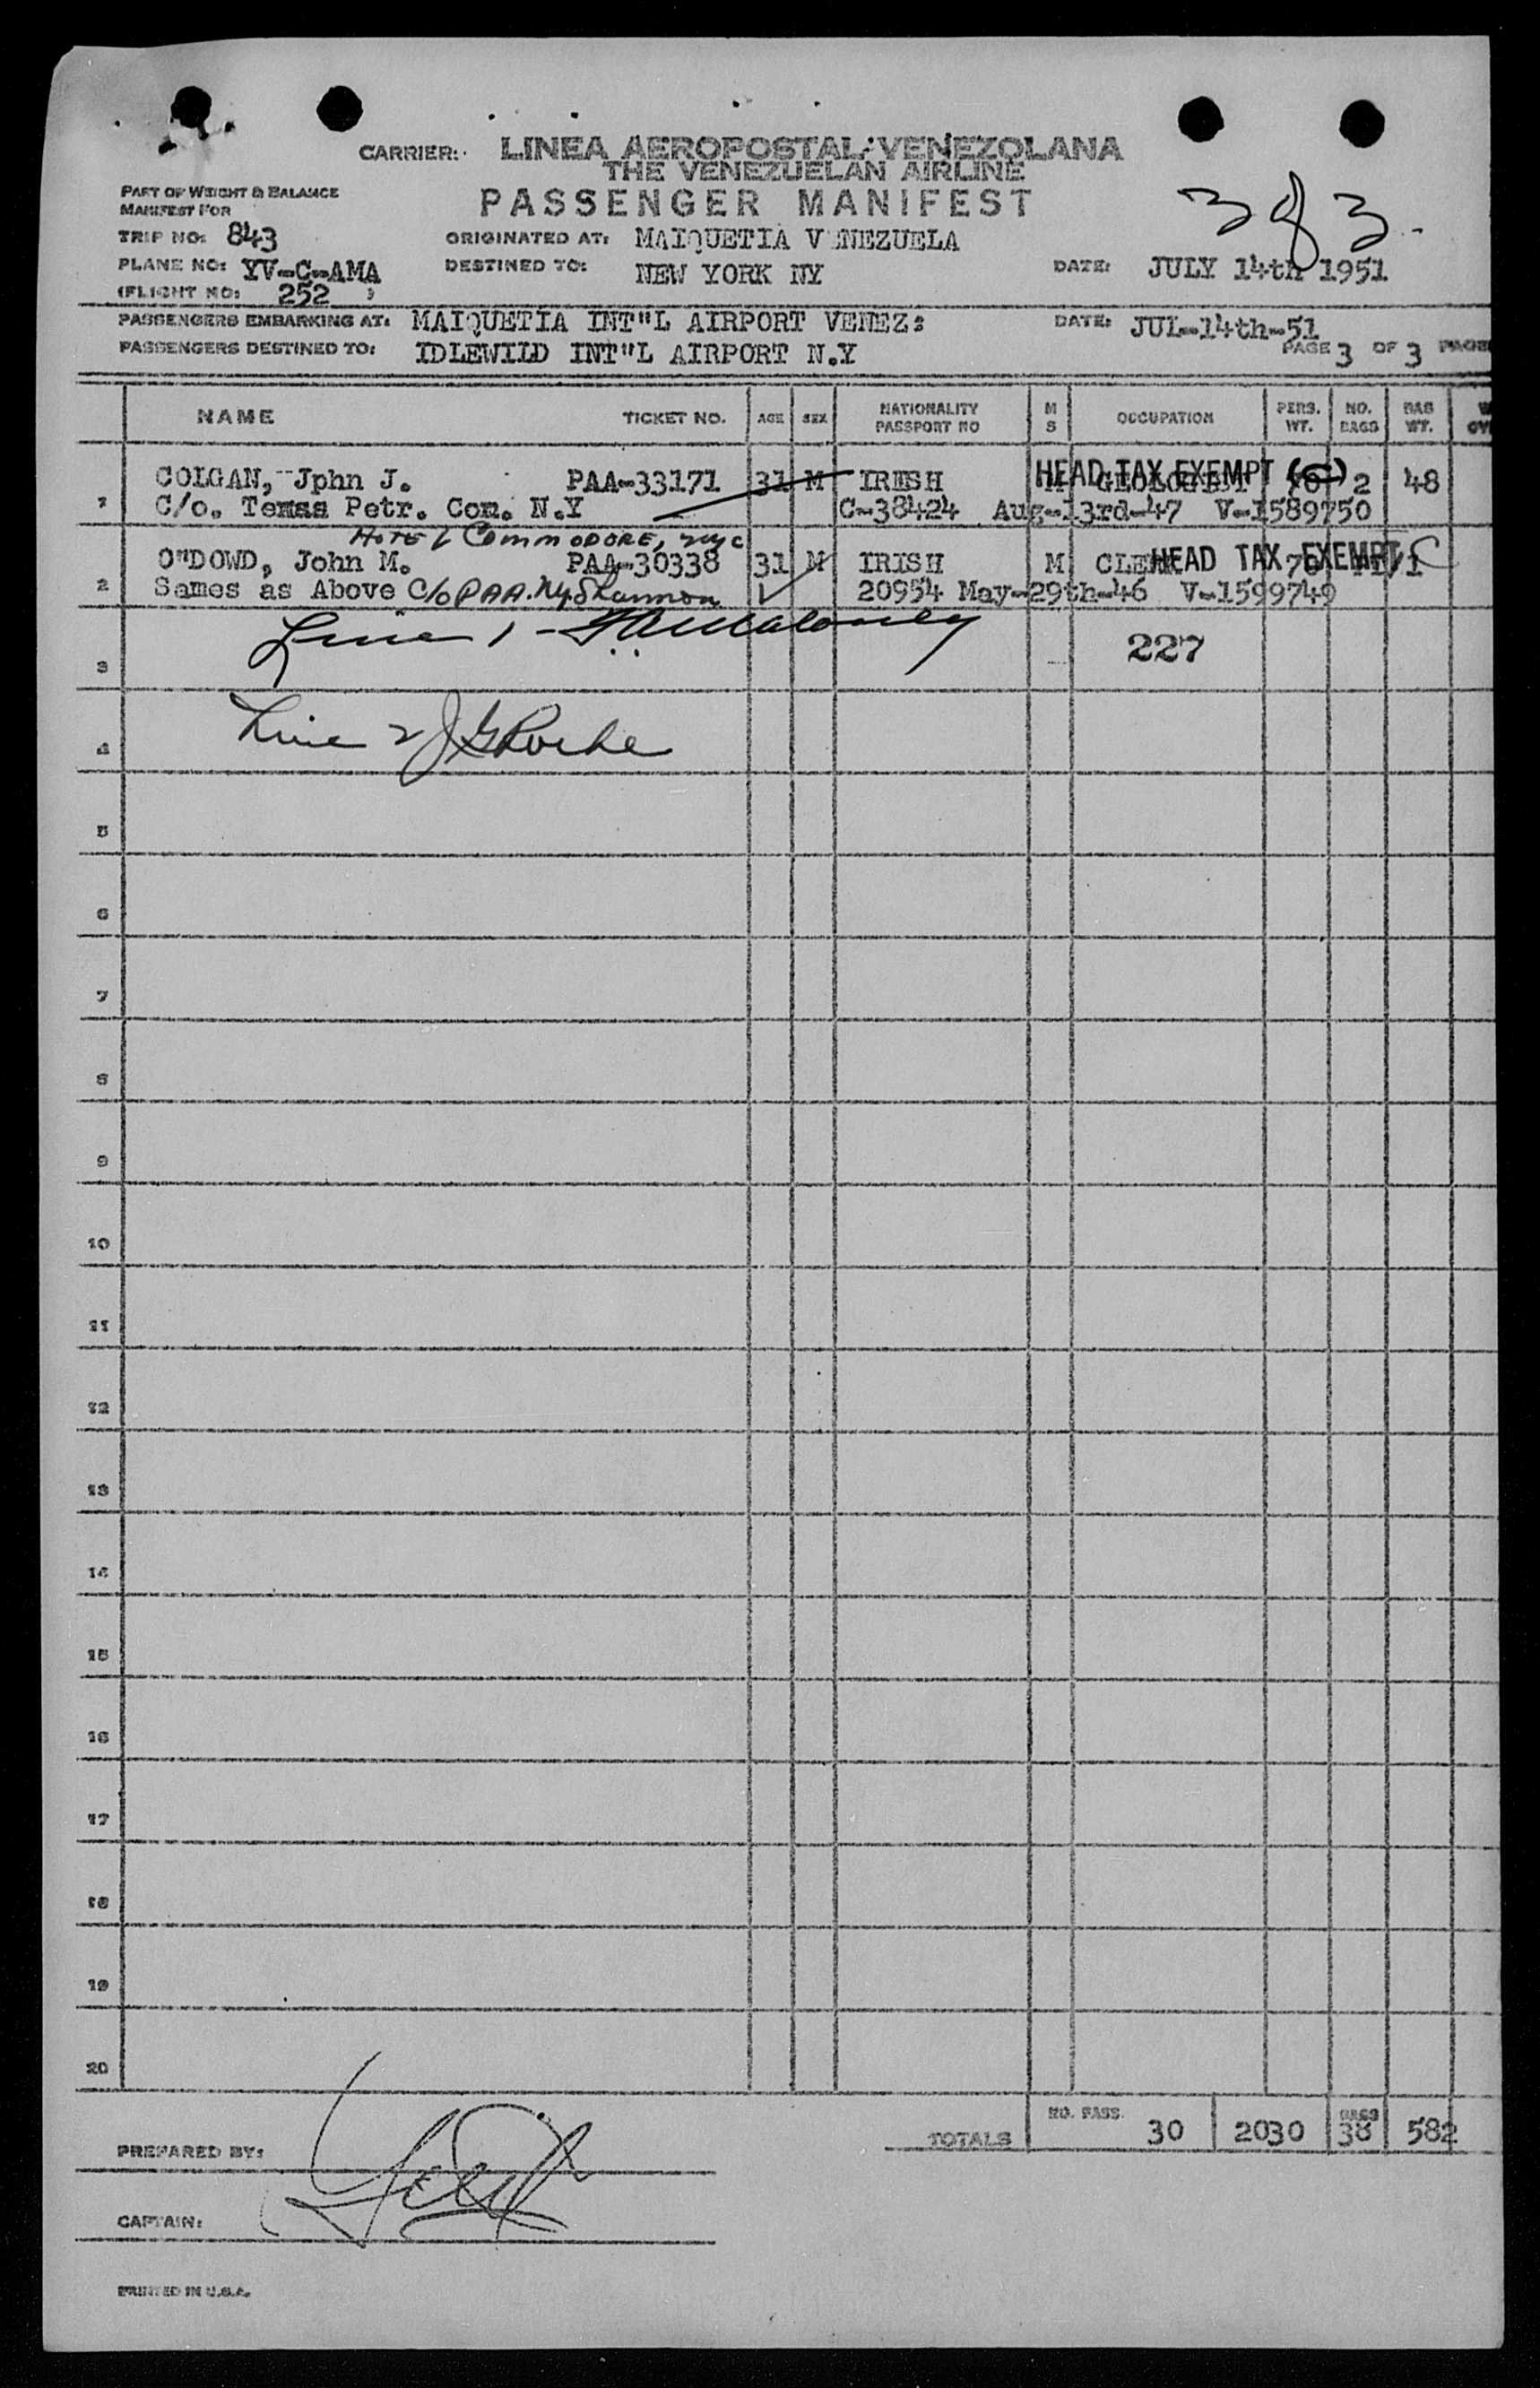 CARRIER: LINEA AEROPOSTAL VENEZOLANA
THE VENEZUELAN AIRLINE
PART OF WEIGHT & BALANCE
MANIFEST FOR
PASSENGER MANIFEST
383.
TRIP NO: 843
ORIGINATED AT: MAIQUETIA V NEZUELA
PLANE NO: YV-C-AMA
DESTINED TO: NEW YORK NY
DATE: JULY 14th 1951
(FLIGHT NO: 252 )
PASSENGERS EMBARKING AT: MAIQUETIA INT"L AIRPORT VENEZ:
DATE: JUL-14th-51
PASSENGERS DESTINED TO: IDLEWILD INT"L AIRPORT N.Y
PAGE 3 OF 3 PAGES
NAME TICKET NO. AGE SEX NATIONALITY PASSPORT NO M S OCCUPATION PERS. WT. NO. BAGS BAG WT.
HEAD TAX EXEMPT
1 COLGAN, Jphn J. PAA-33171 31 M IRISH M GEOLOGIST 70 2 48
C/o. Texas Petr. Com. N.Y C-38424 Aug-13rd-47 V-1589750
HOTEL COMMODORE, nyc
HEAD TAX EXEMPT
2 O"DOWD, John M. PAA-30338 31 M IRISH M CLERK 70
Sames as Above C/o PAA. Ny. Shannon 20954 May-29th-46 V-1599749
3 Line 1 - Maloney 227
4 Line 2 J G Roche
5
6
7
8
9
10
11
12
13
14
15
16
17
18
19
20
TOTALS NO. PASS. 30 2030 BAGS 38 582
PREPARED BY:
CAPTAIN:
PRINTED IN U.S.A.